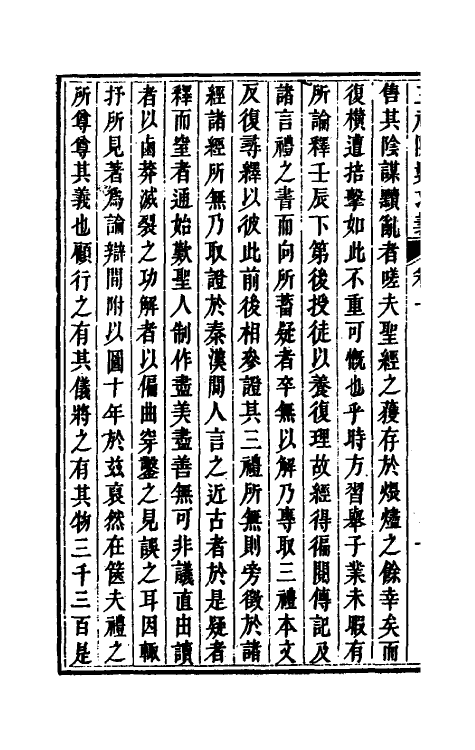 售其陰謀黷亂者嗟夫聖經之獲存於煨燼之餘幸矣而
復橫遭掊擊如此不重可慨也乎時方習舉子業未暇有
所論釋壬辰下第後授徒以養復理故經得徧閱傳記及
諸言禮之書而向所蓄疑者卒無以解乃專取三禮本文
反復尋釋以彼此前後相參證其三禮所無則旁徵於諸
經諸經所無乃取證於秦漢間人言之近古者於是疑者
釋而窒者通始歎聖人制作盡美盡善無可非議直由讀
者以鹵莽滅裂之功解者以偏曲穿鑿之見誤之耳因輒
抒所見著為論辯間附以圖十年於茲裒然在篋夫禮之
所尊尊其義也顧行之有其儀將之有其物三千三百是